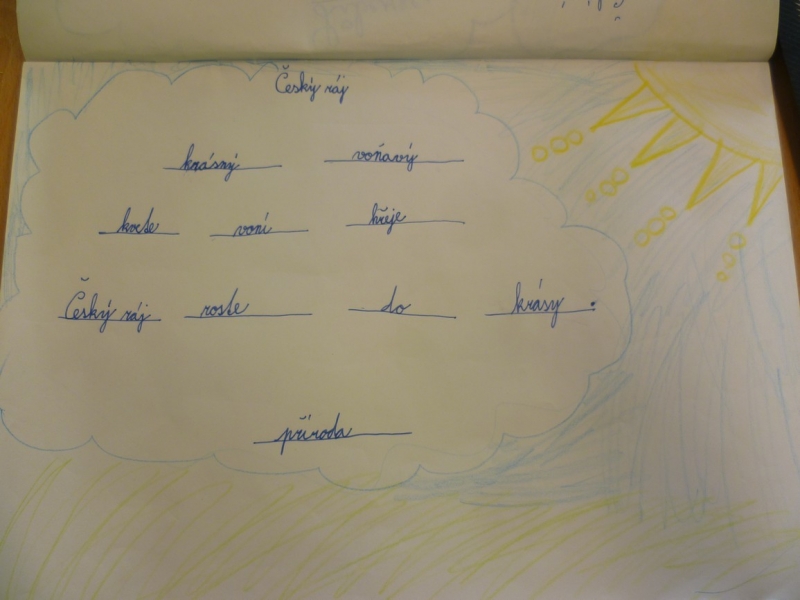 Český ráj
krásný voňavý
kvete voní hřeje
Český ráj roste do krásy.
příroda